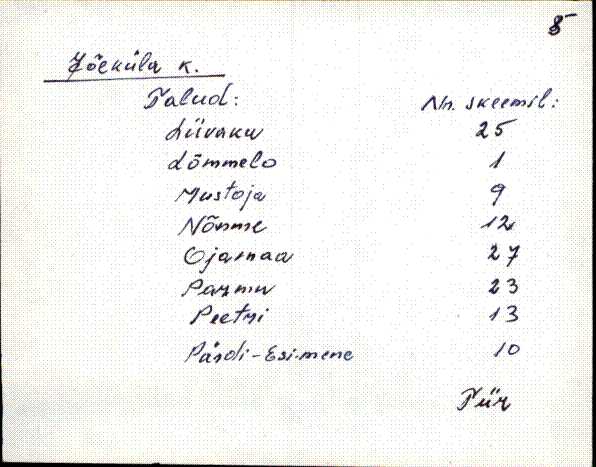 8
Jõeküla k.
Talud: Nr. skeemil:
Liivaku 25
Lõmmelo 1
Mustoja 9
Nõmme 12
Ojamaa 27
Parmu 23
Peetri 13
Pärdi-Esimene 10
Tiir